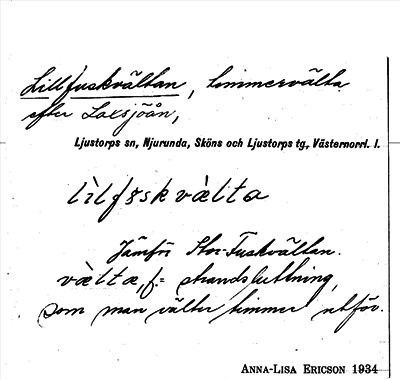 Lillfuskvältan, timmervälta
efter Laxsjöån,
Ljustorps sn, Njurunda, Sköns och Ljustorps tg, Västernorrl. l.
lìlfɞskvὰlta
Jämför Stor-Fuskvältan.
vὰlta, f. = strandsluttning,
som man välter timmer utför.
ANNA-LISA ERICSON 1934